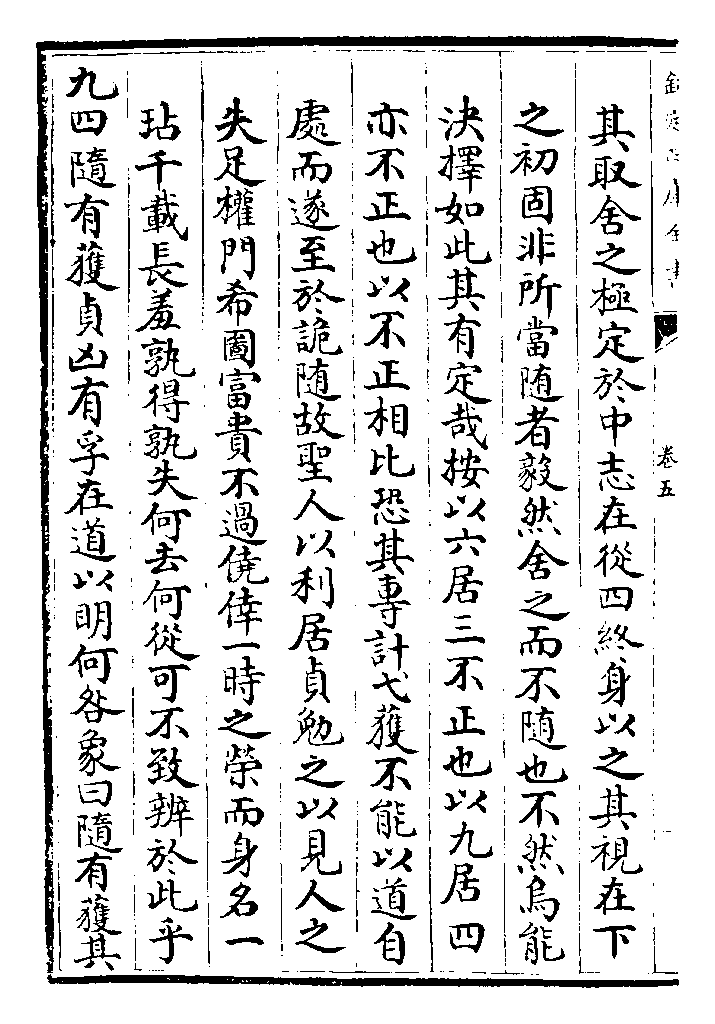 欽定四庫全書
卷五
其取舍之極定於中志在從四終身以之其視在下
之初固非所當随者毅然舍之而不随也不然烏能
決擇如此其有定哉按以六居三不正也以九居四
亦不正也以不正相比恐其專計弋獲不能以道自
處而遂至於詭随故聖人以利居貞勉之以見人之
失足權門希圖富貴不過僥倖一時之榮而身名一
玷千載長羞孰得孰失何去何從可不致辨於此乎
九四隨有獲貞凶有孚在道以明何咎象曰隨有獲其